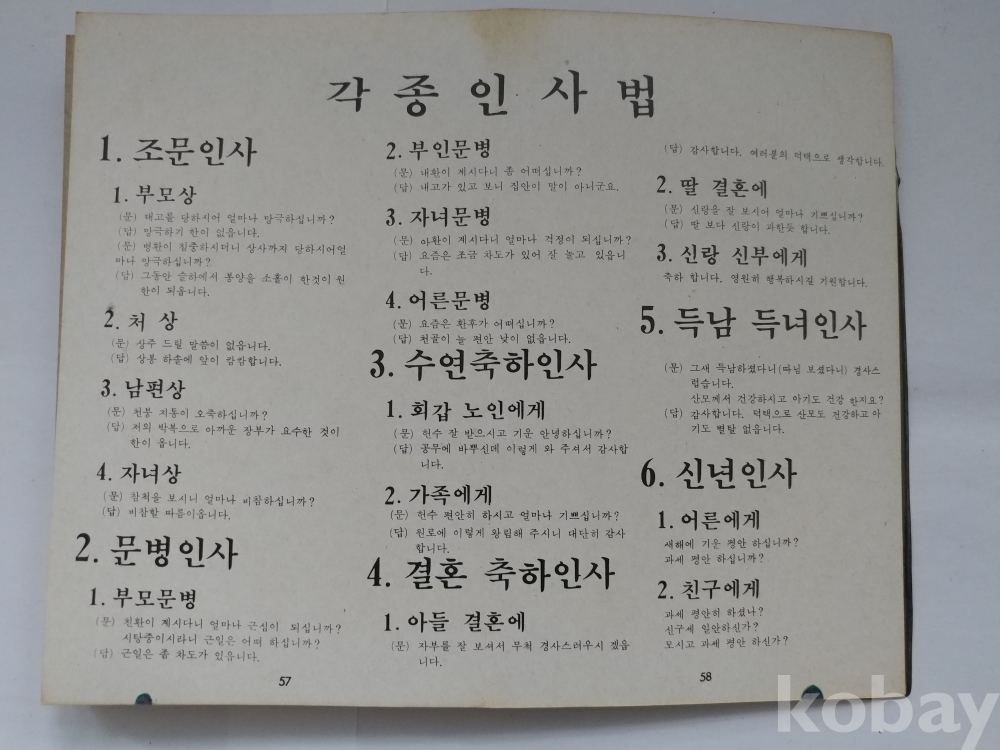 각 종 인 사 법
1. 조문인사
1. 부모상
(문) 대고를 당하시어 얼마나 망극하십니까?
(답) 망극하기 한이 없읍니다.
(문) 병환이 침중하시더니 상사까지 당하시어얼
마나 망극하십니까?
(답) 그동안 슬하에서 봉양을 소홀이 한것이 원
한이 되읍니다.
2. 처 상
(문) 상주 드릴 말씀이 없읍니다.
(답) 상봉 하솔에 앞이 캄캄합니다.
3. 남편상
(문) 천붕 지통이 오죽하십니까?
(답) 저의 박복으로 아까운 장부가 요수한 것이
한이 옵니다.
4. 자녀상
(문) 참척을 보시니 얼마나 비참하십니까?
(답) 비참할 따름이옵니다.
2. 문병인사
1. 부모문병
(문) 친환이 계시다니 얼마나 근심이 되십니까?
시탕중이시라니 근일은 어떠 하십니까?
(답) 근일은 좀 차도가 있읍니다.
57
2. 부인문병
(문) 내환이 계시다니 좀 어떠십니까?
(답) 내고가 있고 보니 집안이 말이 아니군요.
3. 자녀문병
(문) 아환이 계시다니 얼마나 걱정이 되십니까?
(답) 요즘은 조금 차도가 있어 잘 놀고 있읍니
다.
4. 어른문병
(문) 요즘은 환후가 어떠십니까?
(답) 천골이 늘 편안 낮이 없읍니다.
3. 수연축하인사
1. 회갑 노인에게
(문) 헌수 잘 받으시고 기운 안녕하십니까?
(답) 공무에 바쁘신데 이렇게 와 주셔서 감사합
니다.
2. 가족에게
(문) 헌수 편안히 하시고 얼마나 기쁘십니까?
(답) 원로에 이렇게 왕림해 주시니 대단히 감사
합니다.
4. 결혼 축하인사
1. 아들 결혼에
(문) 자부를 잘 보셔서 무척 경사스러우시 겠읍
니다.
(답) 감사합니다. 여러분의 덕택으로 생각합니다.
2. 딸 결혼에
(문) 신랑을 잘 보시어 얼마나 기쁘십니까?
(답) 딸 보다 신랑이 과한듯 합니다.
3. 신랑 신부에게
축하 합니다. 영원히 행복하시길 기원합니다.
5. 득남 득녀인사
(문) 그새 득남하셨다니(따님 보셨다니) 경사스
럽습니다.
산모께서 건강하시고 아기도 건강 한지요?
(답) 감사합니다. 덕택으로 산모도 건강하고 아
기도 별탈 없읍니다.
6. 신년인사
1. 어른에게
새해에 기운 평안 하십니까?
과세 평안 하십니까?
2. 친구에게
과세 평안히 하셨나?
신구세 일안하신가?
모시고 과세 평안 하신가?
58
kobay